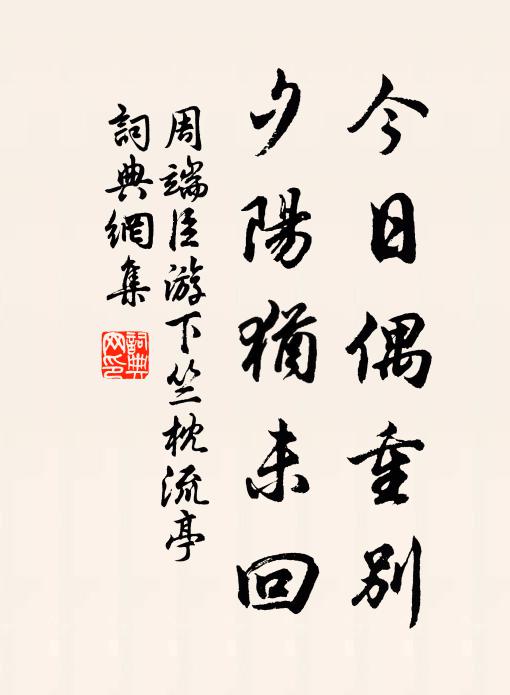 今日偶重別
夕陽猶未回
周端臣游下竺枕流亭
詞典網集
詞典網印